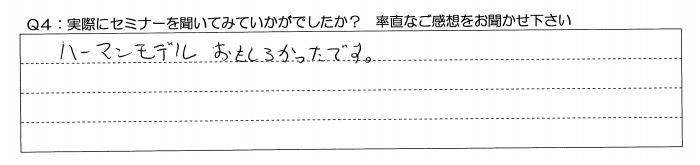 Q4：実際にセミナーを聞いてみていかがでしたか？　率直なご感想をお聞かせ下さい
ハーマンモデル おもしろかったです。